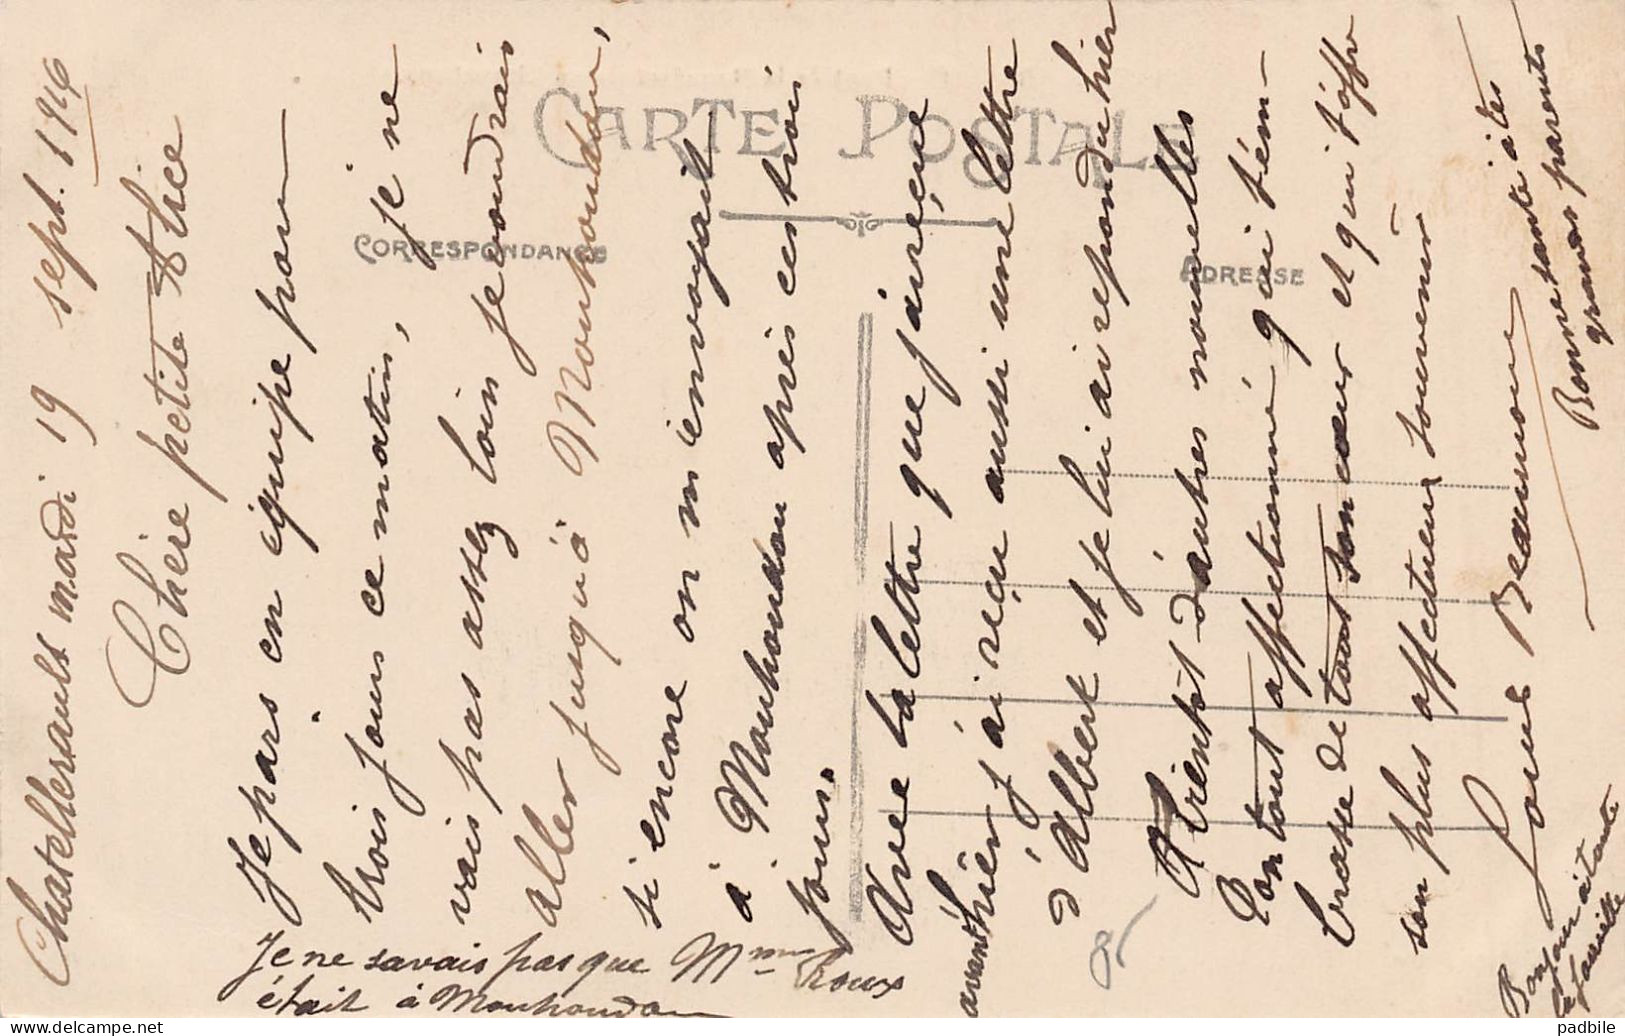 CARTE POSTALE
CORRESPONDANCE
ADRESSE
Chatellerault mardi 19 sept. 1916
Chère petite Alice
Je pars en équipe pour
trois jours ce matin, je ne
vais pas assez loin je voudrais
aller jusqu'à Mouhoudou,
si encore on m'envoyait
à Mouhoudou après ces trois
jours.
Avec la lettre que j'ai reçue
avanthier j'ai reçu aussi une lettre
d'Albert et je lui ai repondu hier
A bientôt d'autres nouvelles
Ton tout affectionné qui t'em-
brasse de tout son cœur et qui t'offre
son plus affectueux souvenir
Louis Beaumone
Bonne santé à tes
Bonne santé
grands parents
Bonjour à tante
et famille
Je ne savais pas que Mme Roux
était à Mouhoudou
padbile